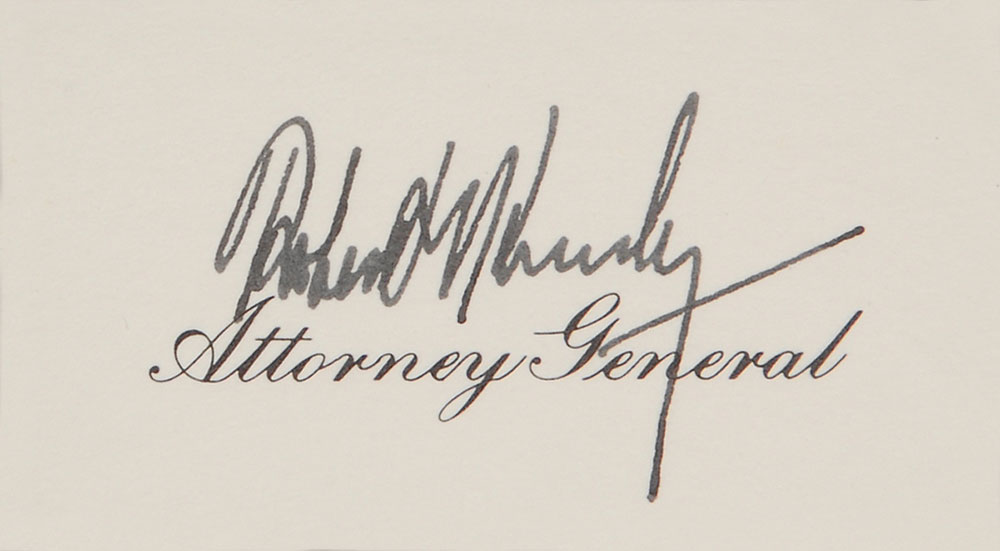 Robert Kennedy
Attorney General